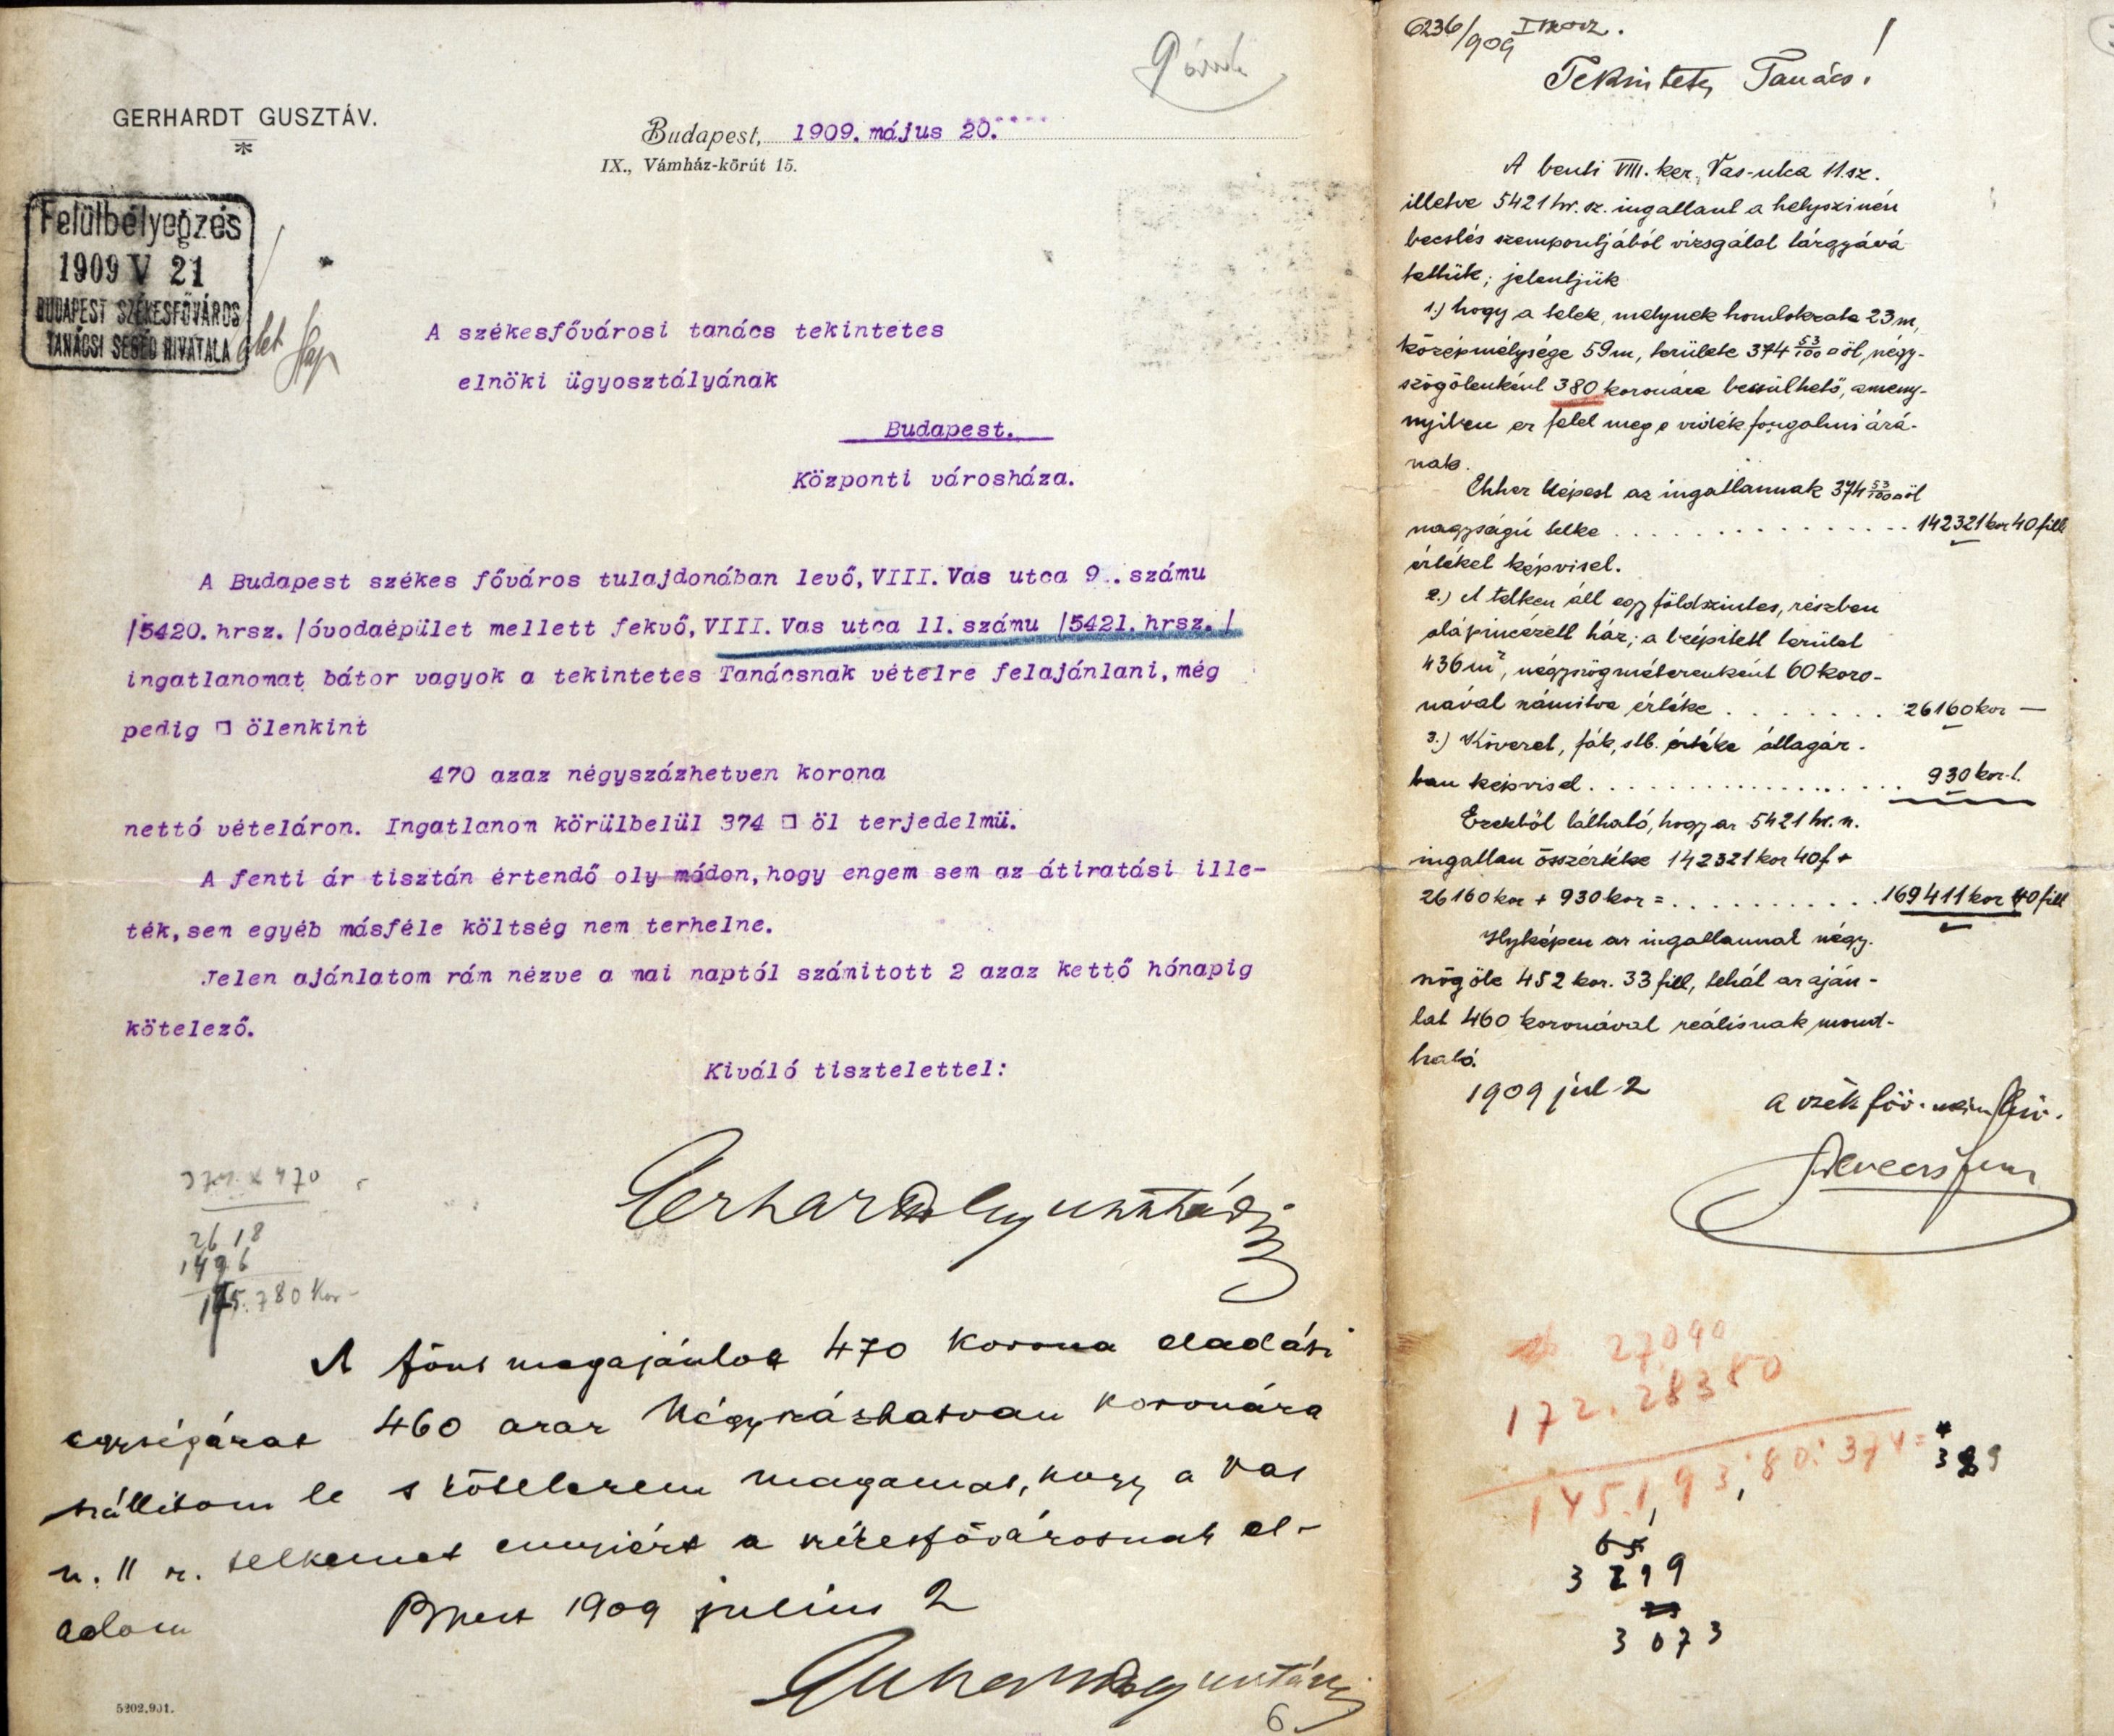 GERHARDT GUSZTÁV.
Budapest, 1909. május 20.
IX., Vámház-körút 15.
Felülbélyegzés
1909 V 21
BUDAPEST SZÉKESFŐVÁROS
TANÁCSI SEGÉD HIVATALA
A székesfővárosi tanács tekintetes
elnöki ügyosztályának
Budapest.
Központi városháza.
A Budapest székes főváros tulajdonában levő, VIII. Vas utca 9. számu
/5420. hrsz. /óvodaépület mellett fekvő, VIII. Vas utca 11. számu /5421. hrsz. /
ingatlanomat bátor vagyok a tekintetes Tanácsnak vételre felajánlani, még
pedig □ ölenkint
470 azaz négyszázhetven korona
nettó vételáron. Ingatlanom körülbelül 374 □ öl terjedelmü.
A fenti ár tisztán értendő oly módon, hogy engem sem az átiratási ille-
ték, sem egyéb másféle költség nem terhelne.
Jelen ajánlatom rám nézve a mai naptól számitott 2 azaz kettő hónapig
kötelező.
Kiváló tisztelettel:
Gerhardt Gusztáv
374 x 470
2618
1496
175.780 Kor-
A fönt megajánlott 470 korona eladási
egységárat 460 azaz Négyszázhatvan koronára
szállitom le s kötelezem magamat, hogy a Vas
u. 11 sz. telkemet ennyiért a székesfővárosnak el-
adom
Bpest 1909 julius 2
Gerhardt Gusztáv
6
5202.901.
6236/909 I
Tekintetes Tanács!
A benti VIII. ker. Vas-utca 11. sz.
illetve 5421 hr. sz. ingatlant a helyszinén
becslés szempontjából vizsgálat tárgyává
tettük; jelentjük
1.) hogy a telek, melynek homlokzata 23 m,
középmélysége 59 m, területe 374 53/100 □öl, négy-
szögölenként 380 koronára becsülhető, ameny-
nyiben ez felel meg e vidék forgalmi árá-
nak.
Ehhez képest az ingatlannak 374 53/100 □öl
nagyságú telke . . . . . . . . . . . 142321 kor 40 fill
értéket képvisel.
2.) A telken áll egy földszintes, részben
alápincézett ház; a beépitett terület
436 m², négyszögméterenként 60 koro-
nával számitva értéke . . . . . . . 26160 kor —
3.) Kövezet, fák, stb. értéke átlagár-
ban képvisel . . . . . . . . . . . . . . 930 kor-t.
Ezekből látható, hogy az 5421 hr. sz.
ingatlan összértéke 142321 kor 40 f +
26160 kor + 930 kor = . . . . . . . . . . 169411 kor 40 fill
Ilyképen az ingatlannak négy-
szögöle 452 kor. 33 fill, tehát az aján-
lat 460 koronával reálisnak mond-
ható.
1909 jul 2
27.090
172.28380
145.193,80:374=
389
3219
3073